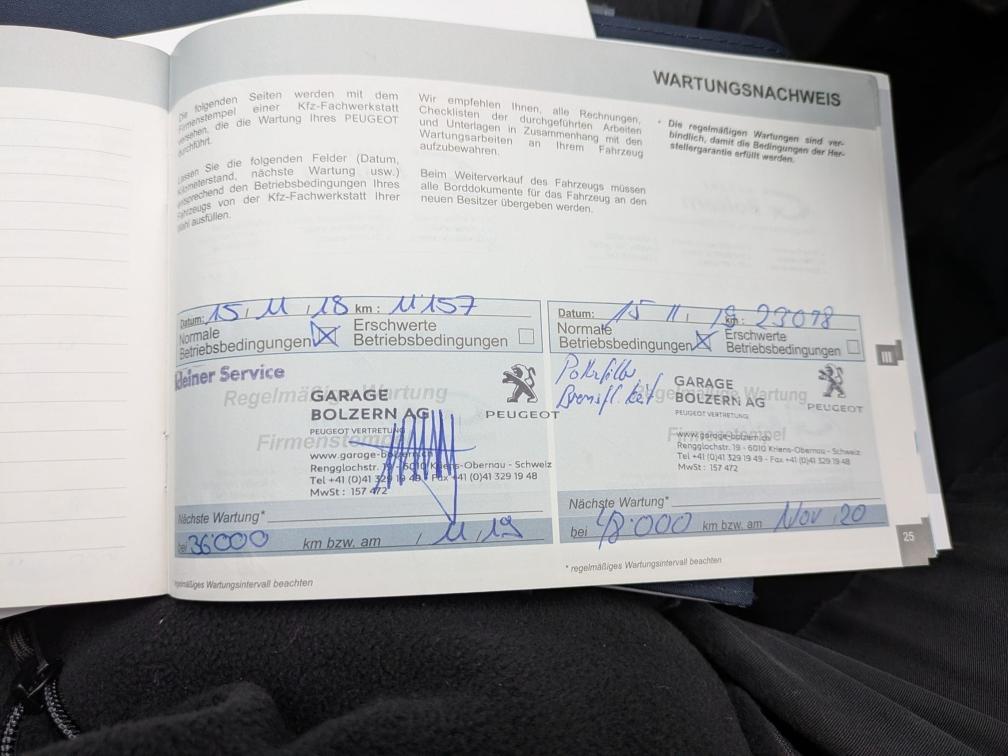 WARTUNGSNACHWEIS
Die folgenden Seiten werden mit dem
Firmenstempel einer Kfz-Fachwerkstatt
versehen, die die Wartung Ihres PEUGEOT
durchführt.
Lassen Sie die folgenden Felder (Datum,
Kilometerstand, nächste Wartung usw.)
entsprechend den Betriebsbedingungen Ihres
Fahrzeugs von der Kfz-Fachwerkstatt Ihrer
Wahl ausfüllen.
Wir empfehlen Ihnen, alle Rechnungen,
Checklisten der durchgeführten Arbeiten
und Unterlagen in Zusammenhang mit den
Wartungsarbeiten an Ihrem Fahrzeug
aufzubewahren.
Beim Weiterverkauf des Fahrzeugs müssen
alle Borddokumente für das Fahrzeug an den
neuen Besitzer übergeben werden.
* Die regelmäßigen Wartungen sind ver-
bindlich, damit die Bedingungen der Her-
stellergarantie erfüllt werden.
Datum: 15, 11, 18 km: 11'157
Normale
Betriebsbedingungen
Erschwerte
Betriebsbedingungen
kleiner Service
Regelmäßige Wartung
Firmenstempel
GARAGE
BOLZERN AG
PEUGEOT VERTRETUNG
PEUGEOT
www.garage-bolzern.ch
Rengglochstr. 19 - 6010 Kriens-Obernau - Schweiz
Tel +41 (0)41 329 19 49 - Fax +41 (0)41 329 19 48
MwSt : 157 472
Nächste Wartung*
bei 36'000 km bzw. am / 11, 19
regelmäßiges Wartungsintervall beachten
Datum: 15 11, 19 km: 23078
Normale
Betriebsbedingungen
Erschwerte
Betriebsbedingungen
Regelmäßige Wartung
Firmenstempel
GARAGE
BOLZERN AG
PEUGEOT VERTRETUNG
PEUGEOT
www.garage-bolzern.ch
Rengglochstr. 19 - 6010 Kriens-Obernau - Schweiz
Tel +41 (0)41 329 19 49 - Fax +41 (0)41 329 19 48
MwSt : 157 472
Nächste Wartung*
bei 48'000 km bzw. am Nov 20
* regelmäßiges Wartungsintervall beachten
III
25